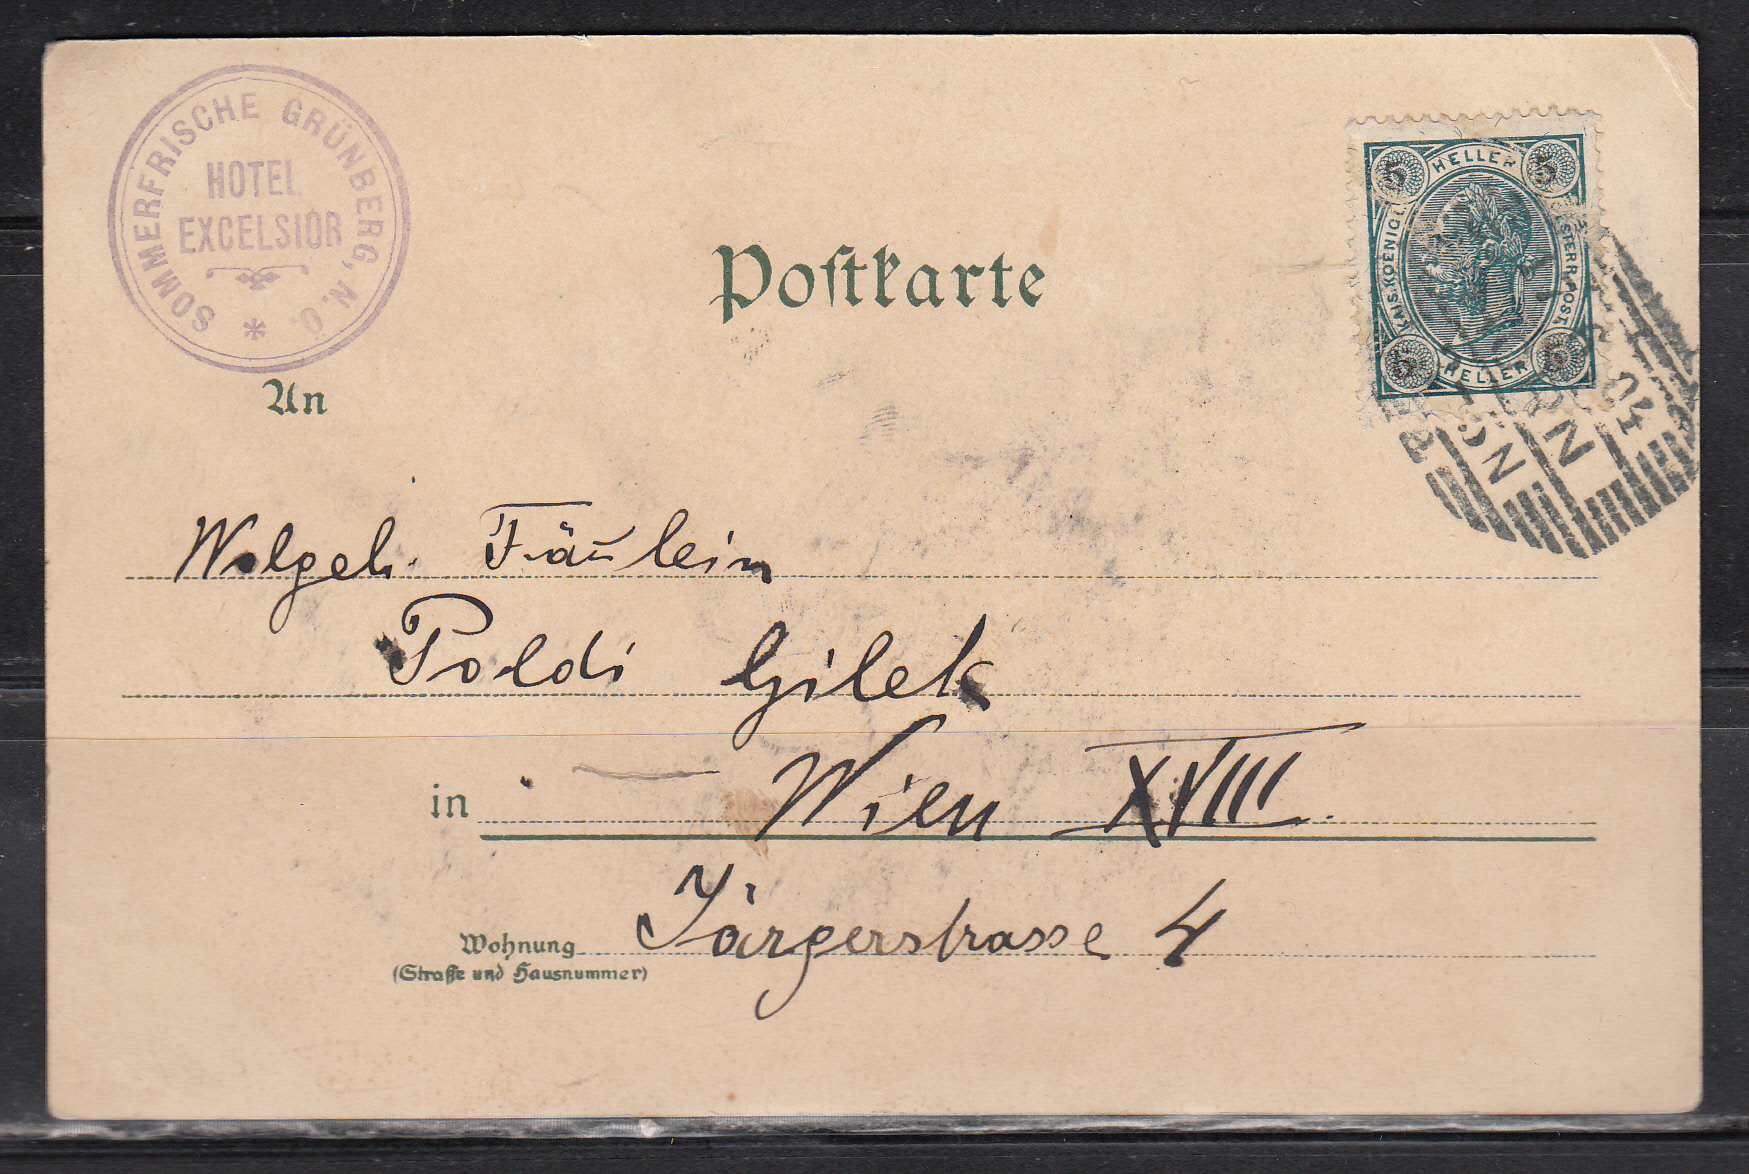 SOMMERFRISCHE GRÜNBERG, N. Ö.
HOTEL
EXCELSIOR
Postkarte
HELLER
5 5
KAIS. KOENIGL. OESTERR. POST.
5 5
HELLER
An
Wolgeb. Fräulein
Poldi Gilek
in Wien XVIII.
Wohnung Jörgerstrasse 4
(Straße und Hausnummer)